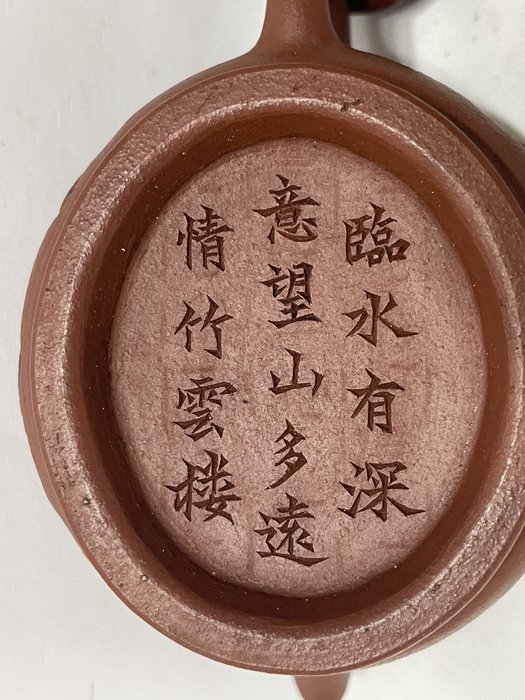 臨水有深
意望山多遠
情竹雲楼